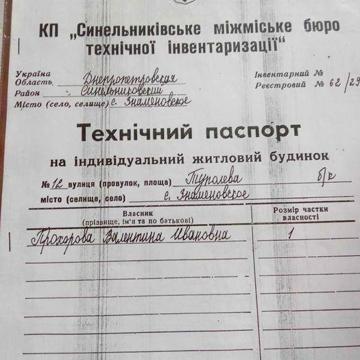 КП „Синельниківське міжміське бюро
технічної інвентаризації“
Україна Днепропетровская Інвентарний №
Район Синельниковский Реєстровий № 62/29
Місто (село, селище) с. Знаменовское
Технічний паспорт
на індивідуальний житловий будинок
№ 12 вулиця (провулок, площа) б/н
місто (селище, село) с. Знаменовское
Власник
(прізвище, ім'я та по батькові)
Розмір частки
власності
Прохорова Валентина Ивановна 1